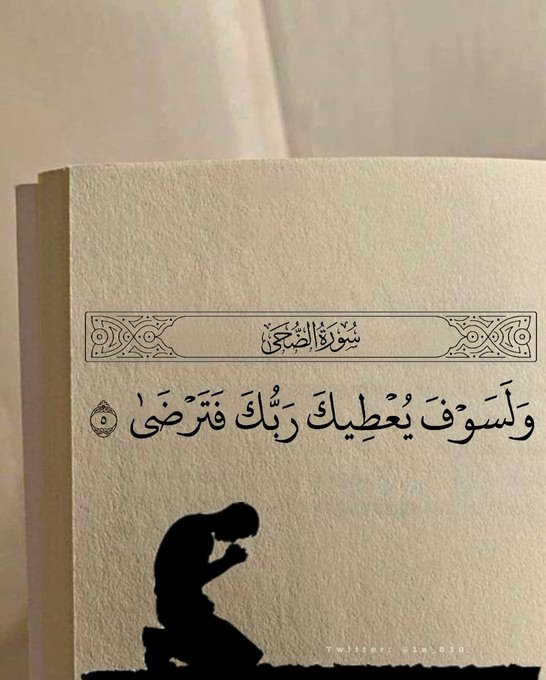 سُورَةُ الضُّحَىٰ
وَلَسَوْفَ يُعْطِيكَ رَبُّكَ فَتَرْضَىٰ ٥
Twitter: @1a_810